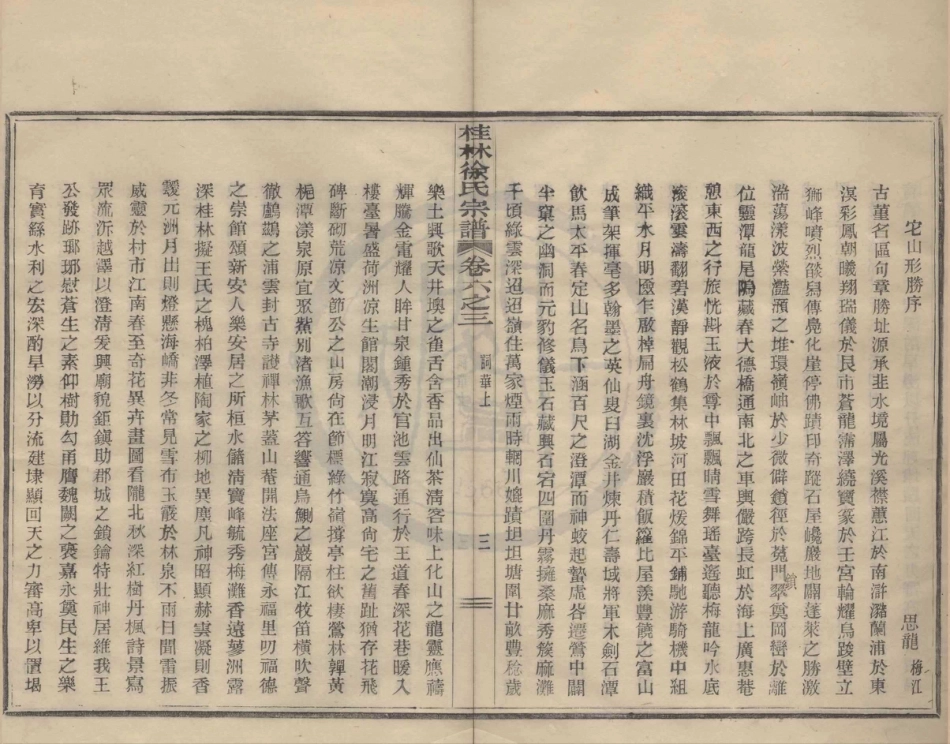 宅山形勝序　思龍 梅江
古董名區句章勝址源承韭水境屬光溪襟蕙江於南滸潞蘭浦於東
溟彩鳳朝曦翔瑞儀於艮市蒼龍蒲澤繞寶篆於王宮輪耀烏踆壁立
獅峰噴烈燄舄傳鳧化崖停佛蹟印奇蹤石屋巉巖地闢蓬萊之勝激
湍蕩漾波縈灩澦之堆環嶺岫於少微僻鎖徑於墓門翠奠岡巒於離
位靈潭龍尾隅藏春大德橋通南北之車輿儼跨長虹於海上廣惠巷
憩東西之行旅恍斟玉液於尊中飄飄晴雪舞瑤臺遙聽梅龍吟水底
滾滾雲濤翻碧漢靜觀松鶴集林坡河田花煖錦平鋪馳游騎機中組
織平水月明匳乍啟棹扁舟鏡裏沈浮巖積飯籮比屋羨豐饒之富山
成筆架揮毫多翰墨之英仙叟臼湖金井煉丹仁壽域將軍木劍石潭
飲馬太平春定山名鳥下涵百尺之澄潭而神蛟起蟄處谷遷鶯中闢
半窠之幽洞而元豹修儀玉石藏輿石宕四圍丹霧擁桑麻秀簇麻灘
千頃綠雲深迢迢嶺住萬家煙雨時輞川嬑蹟坦坦塘圍廿畝豊稔歲
桂林徐氏宗譜　卷六之三　詞華上　三
樂土興歌天井墺之雀舌含香品出仙茶清客味上化山之龍靈應禱
輝騰金電耀人眸甘泉鍾秀於官池雲路通行於王道春深花巷暖入
樓臺暑盛荷洲凉生館閣潮浸月明江寂寞高尚宅之舊趾猶存花飛
碑斷砌荒凉文節公之山房尙在節標綠竹嶺撐亭柱欲棲鶯林嚲黃
梔潭漾泉原宜聚鮆別渚漁歌互答響通烏鰂之巖隔江牧笛橫吹聲
徹鸕鷀之浦雲封古寺護禪林茅蓋山菴開法座宮傳永福里叨福德
之崇館頹新安人樂安居之所桓水儲清寶峰毓秀梅灘香遠蓼洲露
深桂林擬王氏之槐柏澤植陶家之柳地異塵凡神昭顯赫雲凝則香
靉元洲月出則燈懸海嶠非冬常見雪布玉巖於林泉不雨日聞雷振
威靈於村市江南春至奇花異卉畫圖看隴北秋深紅樹丹楓詩景寫
眾流泝越譯以澄清爰興廟貌鉅鎭助郡城之鎖鑰特壯神居維我王
公發跡瑯琊慰蒼生之素仰樹勛勾甬膺魏闕之襃嘉永奠民生之樂
育實繇水利之宏深酌旱澇以分流建埭顯回天之力審高卑以置堨